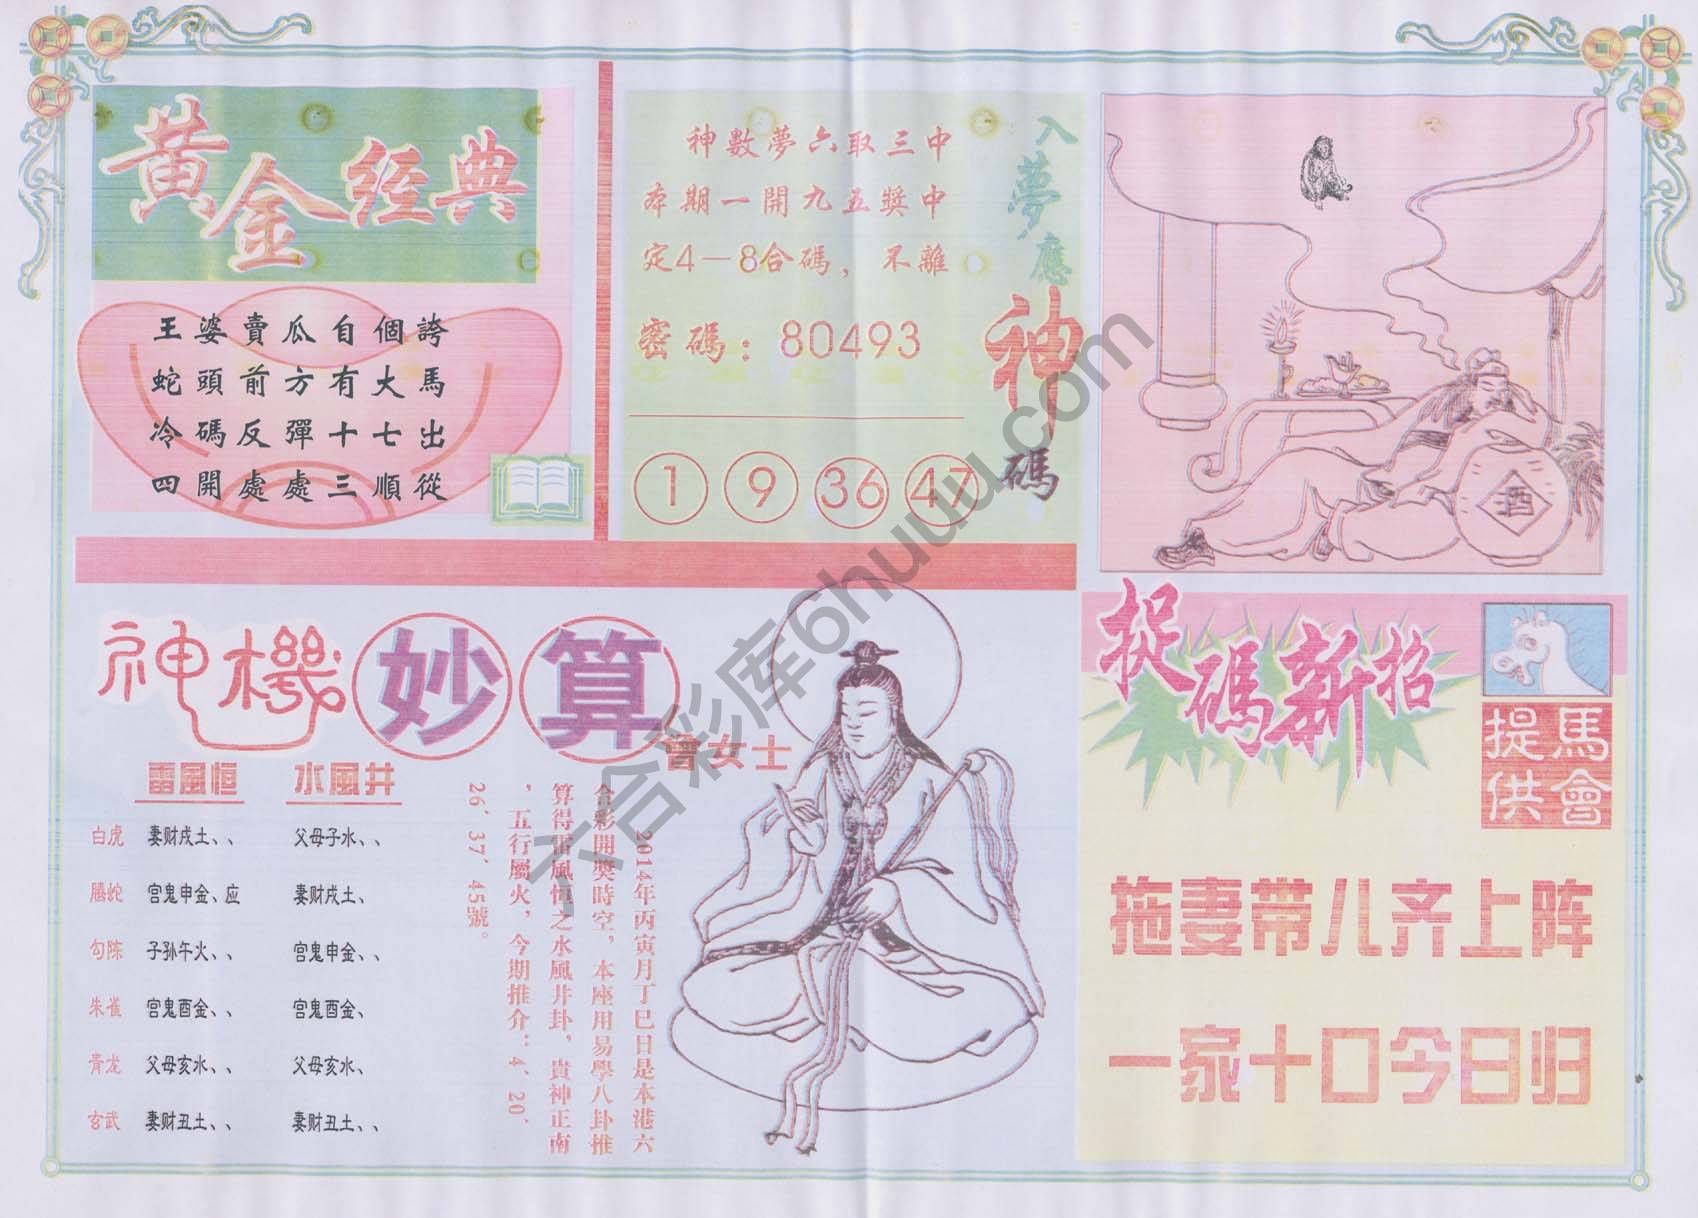 黄金经典
王婆賣瓜自個誇
蛇頭前方有大馬
冷碼反彈十七出
四開處處三順從
入夢應神碼
神數夢六取三中
本期一開九五獎中
定4－8合碼，不離
密碼：80493
1 9 36 47
酒
神機妙算
曾女士
雷風恒 水風井
白虎 妻财戌土、、 父母子水、、
螣蛇 宫鬼申金、应 妻财戌土、
勾陈 子孙午火、、 宫鬼申金、、
朱雀 宫鬼酉金、、 宫鬼酉金、
青龙 父母亥水、、 父母亥水、
玄武 妻财丑土、、 妻财丑土、、
2014年丙寅月丁巳日是本港六
合彩開獎時空，本座用易學八卦推
算得雷風恒之水風井卦，貴神正南
，五行屬火，今期推介：4、20、
26、37、45號。
捉碼新招
馬會提供
拖妻带儿齐上阵
一家十口今日归
六合彩库6huuu.com